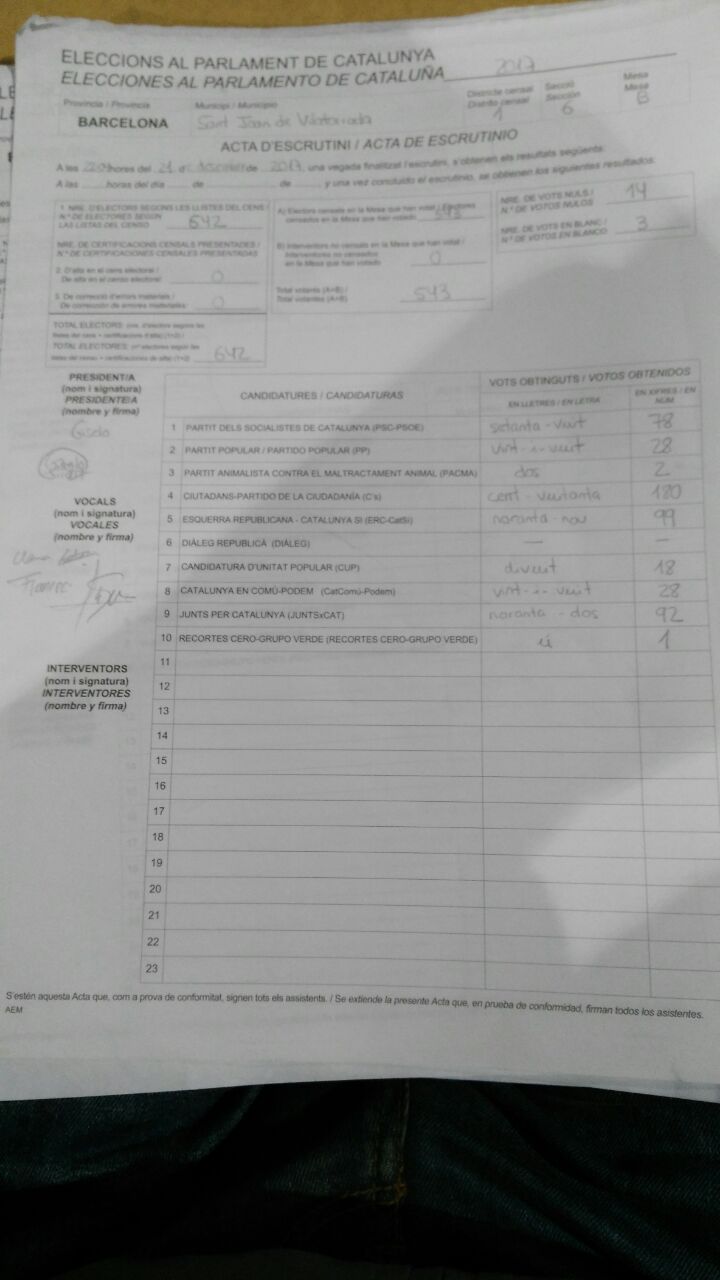 ELECCIONS AL PARLAMENT DE CATALUNYA
ELECCIONES AL PARLAMENTO DE CATALUÑA 2017
Província / Provincia Municipi / Municipio Districte censal Secció Mesa
Distrito censal Sección Mesa
BARCELONA Sant Joan de Vilatorrada 1 6 B
ACTA D'ESCRUTINI / ACTA DE ESCRUTINIO
A les hores del 21 de desembre de 2017, una vegada finalitzat l'escrutini, s'obtenen els resultats següents:
A las horas del día de de y una vez concluido el escrutinio, se obtienen los siguientes resultados:
1. NRE. D'ELECTORS SEGONS LES LLISTES DEL CENS /
N.º DE ELECTORES SEGÚN
LAS LISTAS DEL CENSO 642
NRE. DE CERTIFICACIONS CENSALS PRESENTADES /
N.º DE CERTIFICACIONES CENSALES PRESENTADAS
2. D'alta en el cens electoral /
De alta en el censo electoral 0
3. De correcció d'errors materials /
De corrección de errores materiales 0
TOTAL ELECTORS:
TOTAL ELECTORES: 642
A) Electors censats en la Mesa que han votat / Electores
censados en la Mesa que han votado 543
B) Interventors no censats en la Mesa que han votat /
Interventores no censados
en la Mesa que han votado 0
Total votants (A+B) /
Total votantes (A+B) 543
NRE. DE VOTS NULS /
N.º DE VOTOS NULOS 14
NRE. DE VOTS EN BLANC /
N.º DE VOTOS EN BLANCO 3
PRESIDENT/A
(nom i signatura)
PRESIDENTE/A
(nombre y firma)
Gisela
VOCALS
(nom i signatura)
VOCALES
(nombre y firma)
INTERVENTORS
(nom i signatura)
INTERVENTORES
(nombre y firma)
CANDIDATURES / CANDIDATURAS VOTS OBTINGUTS / VOTOS OBTENIDOS
EN LLETRES / EN LETRA EN XIFRES / EN NÚM
1 PARTIT DELS SOCIALISTES DE CATALUNYA (PSC-PSOE) setanta-vuit 78
2 PARTIT POPULAR / PARTIDO POPULAR (PP) vint-i-vuit 28
3 PARTIT ANIMALISTA CONTRA EL MALTRACTAMENT ANIMAL (PACMA) dos 2
4 CIUTADANS-PARTIDO DE LA CIUDADANÍA (C's) cent-vuitanta 180
5 ESQUERRA REPUBLICANA - CATALUNYA SI (ERC-CatSí) noranta-nou 99
6 DIÀLEG REPUBLICÀ (DIÀLEG) — —
7 CANDIDATURA D'UNITAT POPULAR (CUP) divuit 18
8 CATALUNYA EN COMÚ-PODEM (CatComú-Podem) vint-i-vuit 28
9 JUNTS PER CATALUNYA (JUNTSxCAT) noranta-dos 92
10 RECORTES CERO-GRUPO VERDE (RECORTES CERO-GRUPO VERDE) 1
11
12
13
14
15
16
17
18
19
20
21
22
23
S'estén aquesta Acta que, com a prova de conformitat, signen tots els assistents. / Se extiende la presente Acta que, en prueba de conformidad, firman todos los asistentes.
AEM